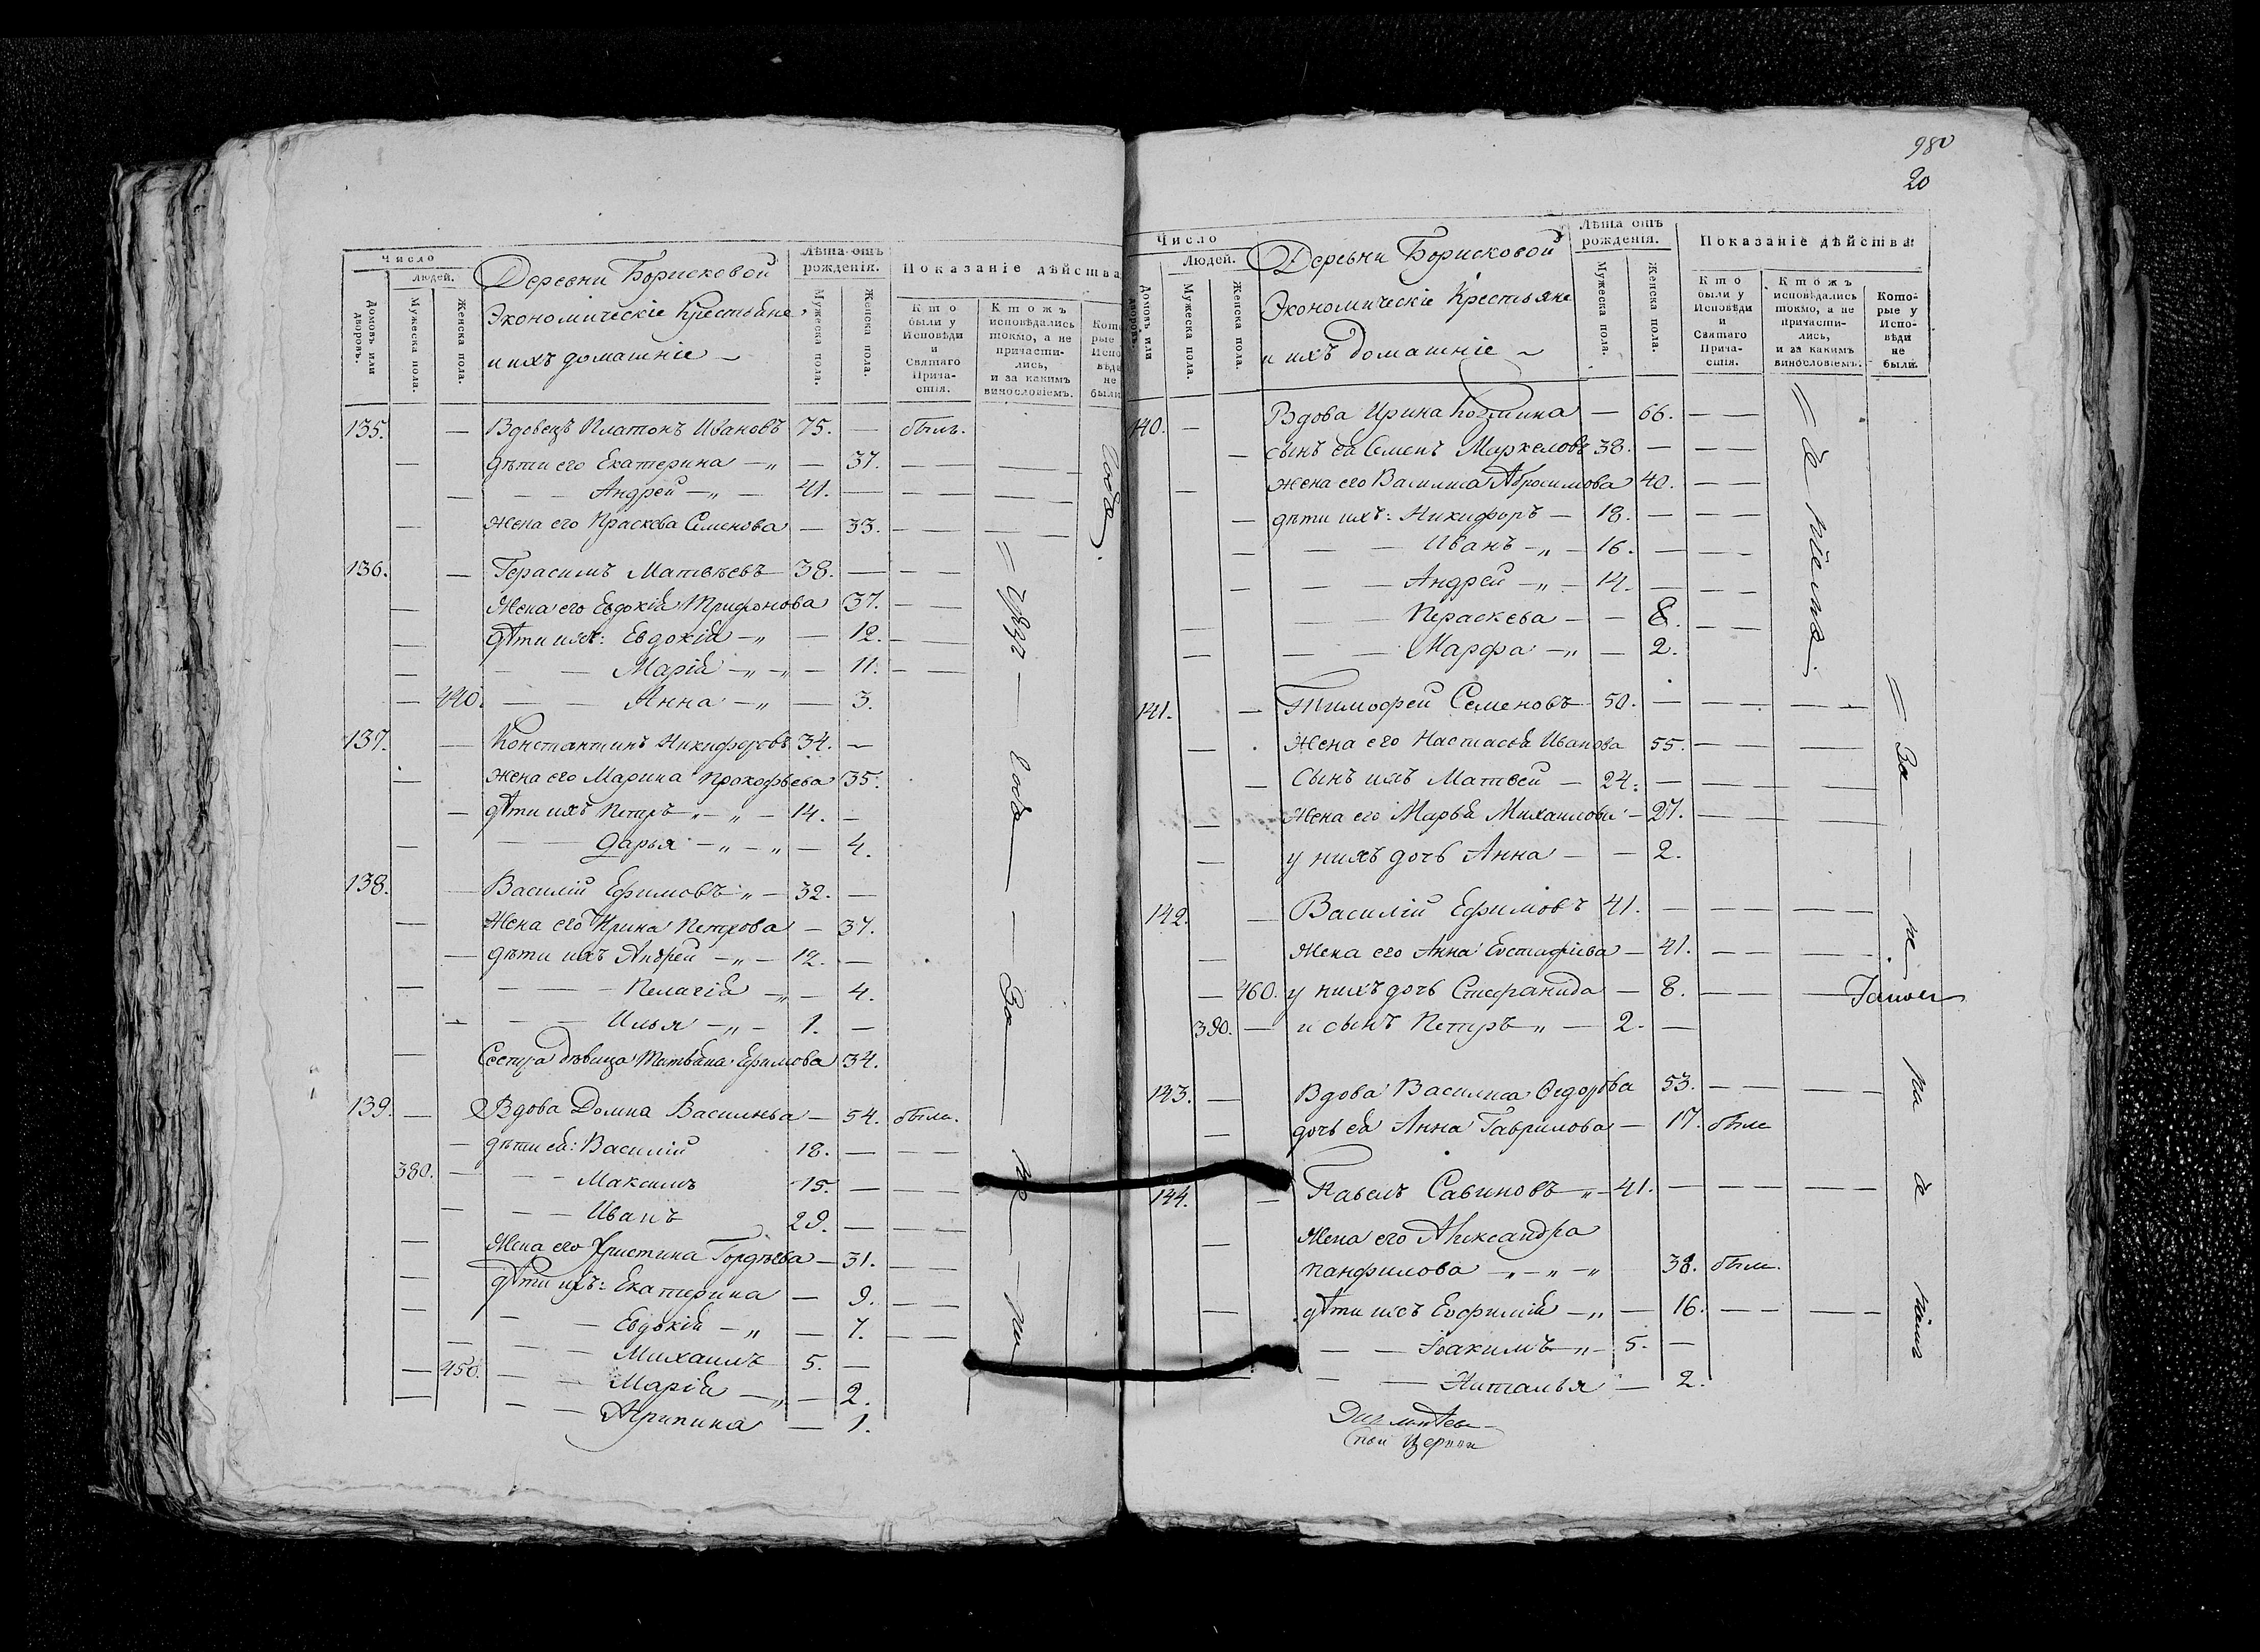 Число
людей.
Домовъ или дворовъ.
Мужеска пола.
Женска пола.
Деревни Борисковой
Экономическіе Крестьяне
и ихъ домашніе
Лѣта отъ рожденія.
Мужеска пола.
Женска пола.
Показаніе дѣйства
Кто были у Исповѣди и Святаго Причастія.
Ктожъ исповѣдались токмо, а не причастились, и за какимъ винословіемъ.
135. — Вдовецъ Платонъ Ивановъ 75. — былъ.
— дѣти его Екатерина —„ — 37. — —
— — — Андрей —„ — 41. — — —
— жена его Праскева Семенова — 33. — —
136. — Герасимъ Матвѣевъ 38. — — —
— Жена его Евдокія Трифонова 37. — —
— дѣти ихъ: Евдокія —„ — 12. —
— — — Марія —„ —„ — 11. — —
— 440. — — Анна —„ — 3.
137. — Константинъ Никифоровъ 34. —
— жена его Марина Прокофьева 35.
— дѣти ихъ Петръ —„ —„ — 14. —
— — — Дарья —„ —„ — 4.
138. — Василій Ефимовъ „ — 32. —
— Жена его Ирина Петрова — 37.
— дѣти ихъ Андрей —„ — 12. —
— — — Пелагія —„ — 4.
— — — Илья —„ — 1. —
— Сестра дѣвица Татьяна Ефимова 34.
139. — Вдова Домна Васильева — 54. была.
— дѣти ея: Василій 18. — — —
380. — — — Максимъ 15. — — —
— — — Иванъ 29. — — —
— Жена его Христина Гордѣева — 31. — —
— дѣти ихъ: Екатерина — 9. — —
— — — Евдокія —„ — 7. — —
— — — Михаилъ 5. —
— 450. — — Марія —„ — 2.
— — — Агрипина — 1.
980
20
Число
Людей.
Домовъ или дворовъ.
Мужеска пола.
Женска пола.
Деревни Борисковой
Экономическіе Крестьяне
и ихъ домашніе
Лѣта отъ рожденія.
Мужеска пола.
Женска пола.
Показаніе дѣйства
Кто были у Исповѣди и Святаго Причастія.
Ктожъ исповѣдались токмо, а не причастились, и за какимъ винословіемъ.
Которые у Исповѣди не были.
140. — Вдова Ирина Козмина — 66. — —
— сынъ ея Семенъ Маркеловъ 38. — — —
— жена его Василиса Абросимова 40. — —
— дѣти ихъ: Никифоръ — 18. — — —
— — — Иванъ —„ — 16. — — —
— — — Андрей —„ — 14. — — —
— — — Пераскева — — 8. — —
— — — Марфа —„ — 2.
141. — Тимофей Семеновъ 50. — — —
— Жена его Настасья Иванова 55. — —
— Сынъ ихъ Матвей — 24. — — —
— Жена его Марья Михаилова — 27. — —
— у нихъ дочь Анна — — 2.
142. — Василій Ефимовъ 41. — — —
— Жена его Анна Евстафіева — 41. — —
— 460. у нихъ дочь Стефанида — 8. — —
390. — и сынъ Петръ „ — 2. —
143. — Вдова Василиса Сидорова 53. — —
— дочь ея Анна Гаврилова — 17. была
144. — Павелъ Савиновъ —„ — 41. — — —
— Жена его Александра
Панфилова —„ —„ —„ 38. была.
— дѣти ихъ Евфимія —„ — 16. — —
— — Іоакимъ —„ — 5. —
— — — Наталья — 2.
Церкви